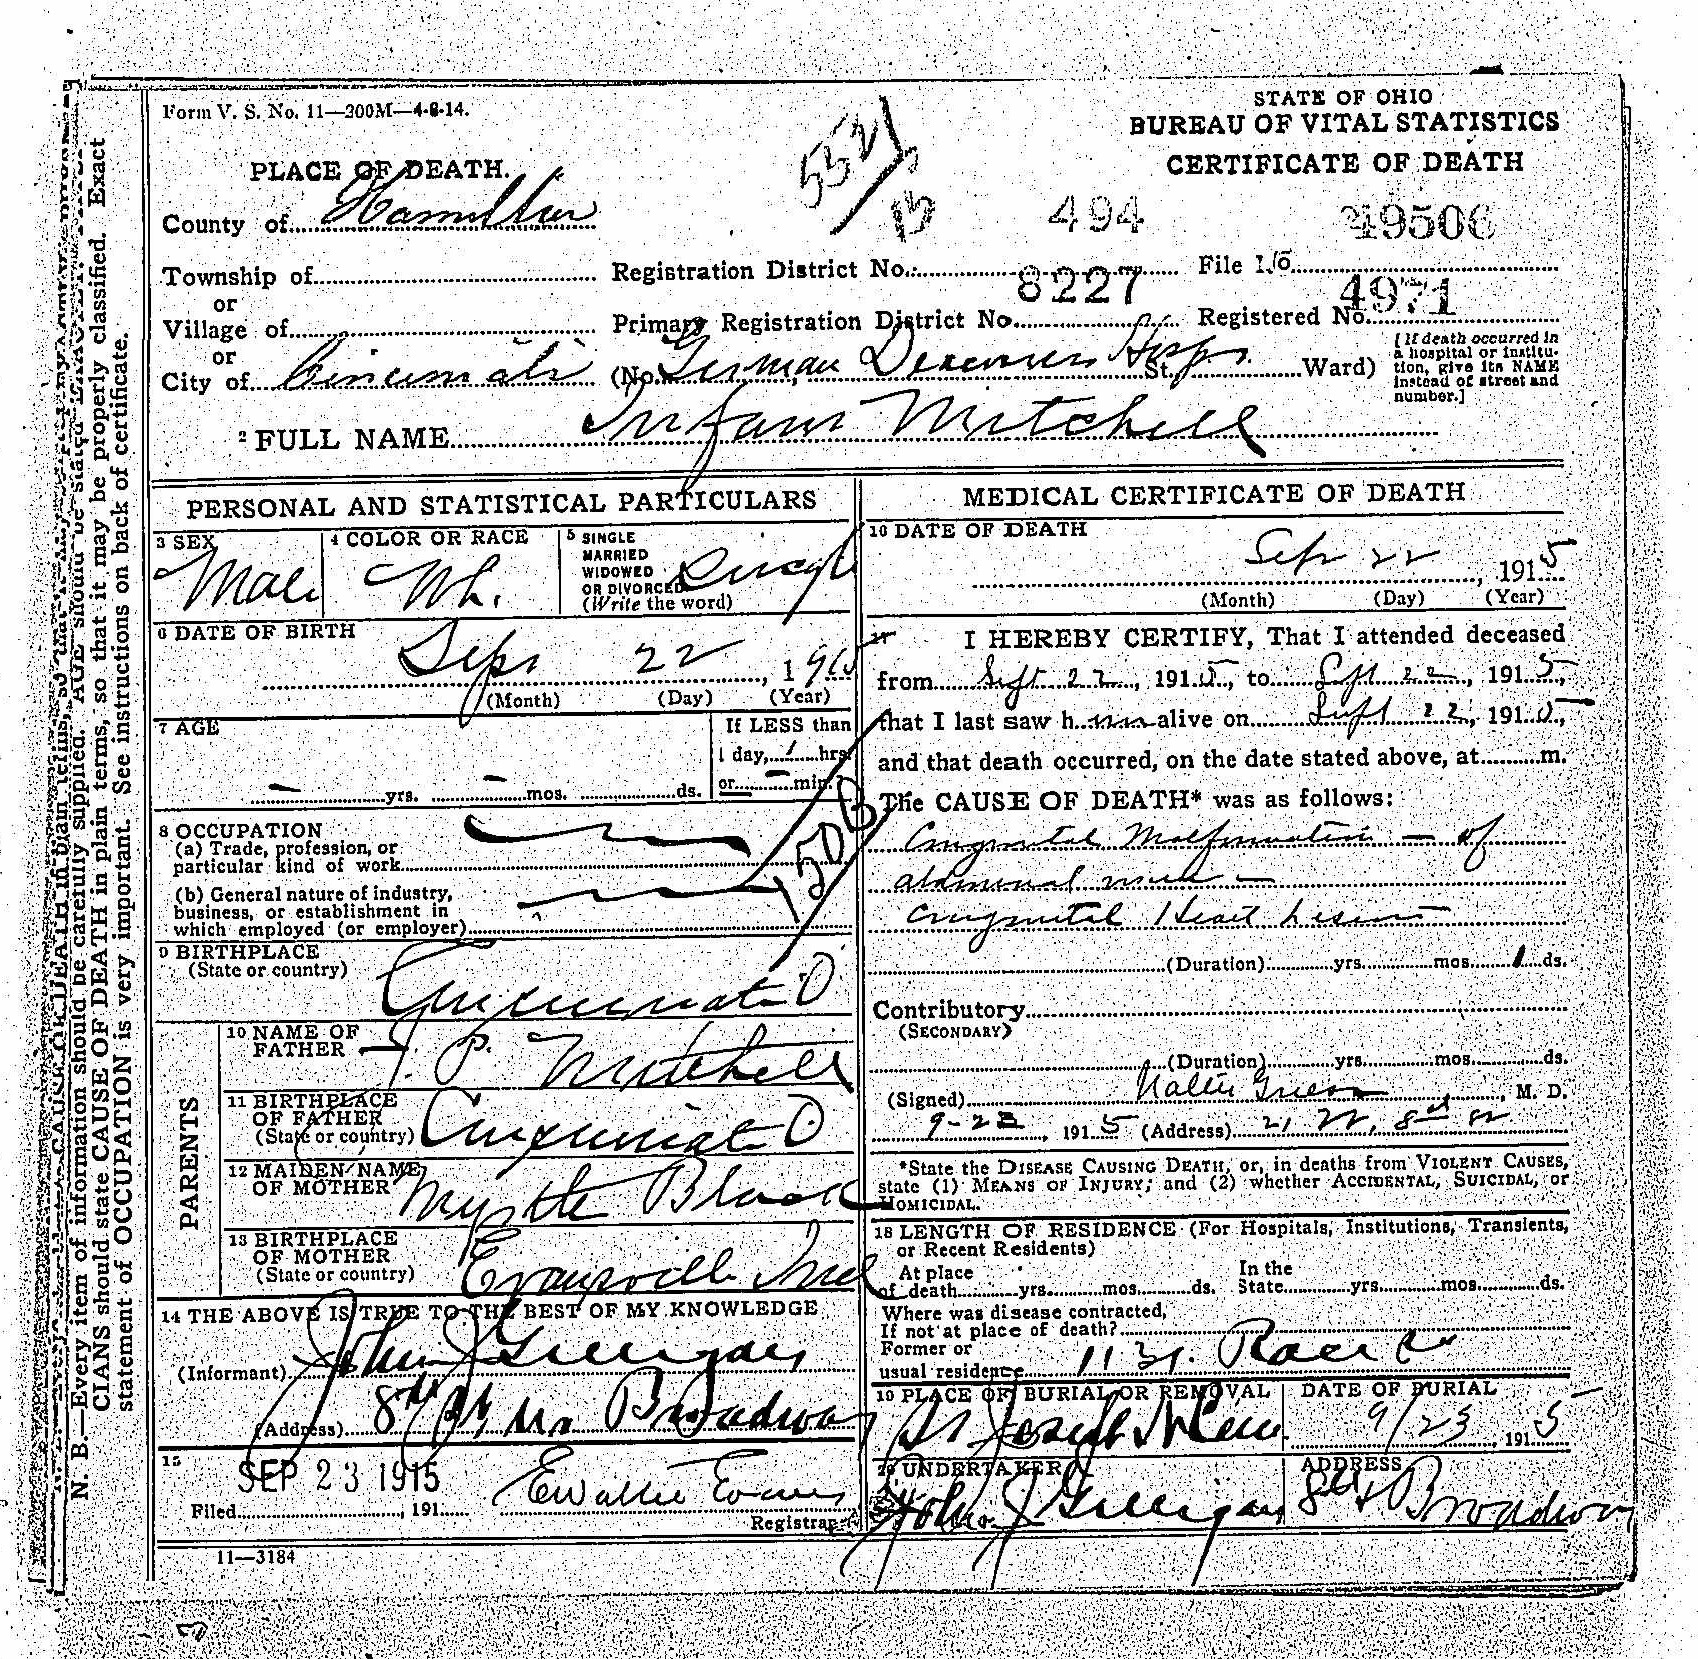 Form V. S. No. 11—300M—4-8-14.
STATE OF OHIO
BUREAU OF VITAL STATISTICS
CERTIFICATE OF DEATH
PLACE OF DEATH.
County of Hamilton
494
Township of
Registration District No. File No.
or
8227 4971
Village of
Primary Registration District No. Registered No.
or
City of Cincinnati (No. German Deaconess Hosp. St. Ward)
[If death occurred in
a hospital or institu-
tion, give its NAME
instead of street and
number.]
2 FULL NAME Infant Mitchell
PERSONAL AND STATISTICAL PARTICULARS
3 SEX
Male
4 COLOR OR RACE
Wh.
5 SINGLE
MARRIED
WIDOWED
OR DIVORCED
(Write the word)
Single
6 DATE OF BIRTH
Sept 22, 1915
(Month) (Day) (Year)
7 AGE
If LESS than
1 day, 1 hrs.
— yrs. — mos. ds. or — min.
8 OCCUPATION
(a) Trade, profession, or
particular kind of work
(b) General nature of industry,
business, or establishment in
which employed (or employer)
150 B
9 BIRTHPLACE
(State or country)
Cincinnati O
PARENTS
10 NAME OF
FATHER
J. P. Mitchell
11 BIRTHPLACE
OF FATHER
(State or country)
Cincinnati O
12 MAIDEN NAME
OF MOTHER
Myrtle Black
13 BIRTHPLACE
OF MOTHER
(State or country)
Evansville Ind
14 THE ABOVE IS TRUE TO THE BEST OF MY KNOWLEDGE
(Informant) John J Gilligan
(Address) 8th Broadway
15
SEP 23 1915
Filed , 191
Registrar
11—3184
MEDICAL CERTIFICATE OF DEATH
16 DATE OF DEATH
Sep 22, 1915
(Month) (Day) (Year)
17 I HEREBY CERTIFY, That I attended deceased
from Sept 22, 1915, to Sept 22, 1915,
that I last saw him alive on Sept 22, 1915,
and that death occurred, on the date stated above, at m.
The CAUSE OF DEATH* was as follows:
Congenital Malformation — of
abdominal —
Congenital Heart Lesion
(Duration) yrs. mos. 1 ds.
Contributory
(SECONDARY)
(Duration) yrs. mos. ds.
(Signed) , M. D.
9-23, 1915 (Address) 21 W. 8th St
*State the DISEASE CAUSING DEATH, or, in deaths from VIOLENT CAUSES,
state (1) MEANS OF INJURY; and (2) whether ACCIDENTAL, SUICIDAL, or
HOMICIDAL.
18 LENGTH OF RESIDENCE (For Hospitals, Institutions, Transients,
or Recent Residents)
At place In the
of death yrs. mos. ds. State yrs. mos. ds.
Where was disease contracted,
If not at place of death?
Former or
usual residence Race St
19 PLACE OF BURIAL OR REMOVAL
St Joseph Cem.
DATE OF BURIAL
9/23, 1915
20 UNDERTAKER
John J Gilligan
ADDRESS
8th Broadway
N. B.—Every item of information should be carefully supplied. AGE should be stated EXACTLY. PHYSI-
CIANS should state CAUSE OF DEATH in plain terms, so that it may be properly classified. Exact
statement of OCCUPATION is very important. See instructions on back of certificate.